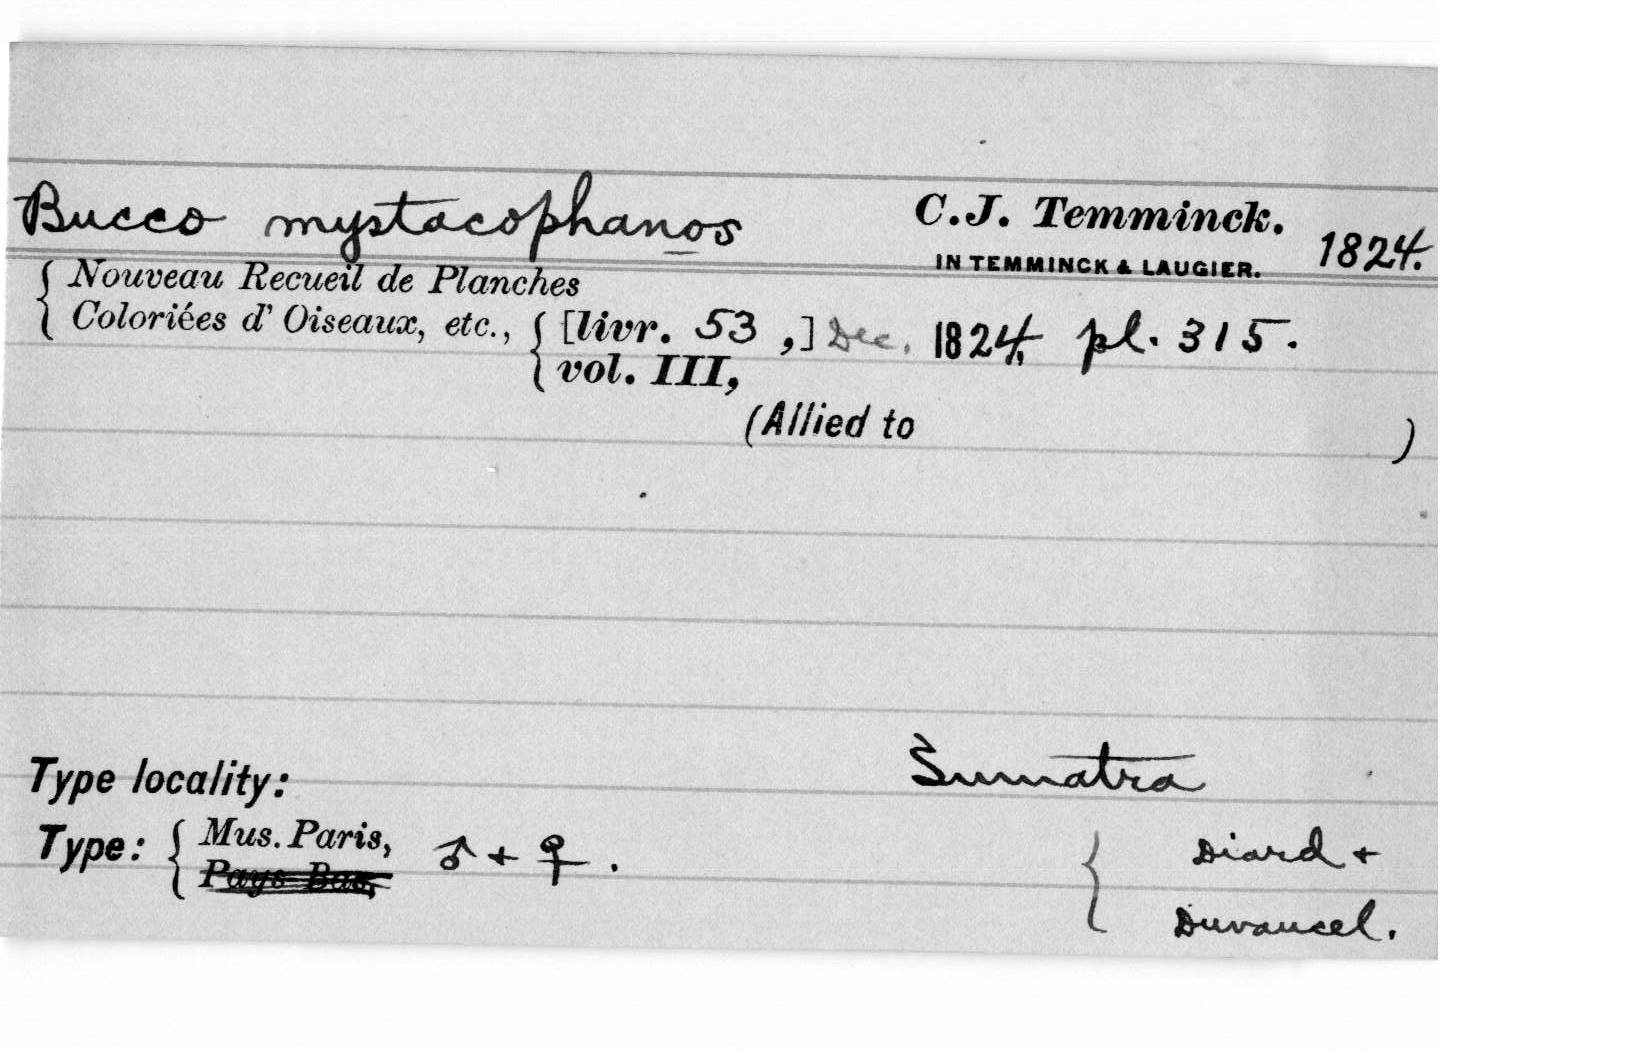 Bucco mystacophanos C.J. Temminck. 1824.
IN TEMMINCK & LAUGIER.
{ Nouveau Recueil de Planches
Coloriées d' Oiseaux, etc., { [livr. 53 ,] Dec. 1824, pl. 315.
vol. III,
(Allied to )
Type locality: Sumatra
Type: { Mus. Paris, ♂ + ♀ . { Diard +
Pays-Bas, Duvaucel.